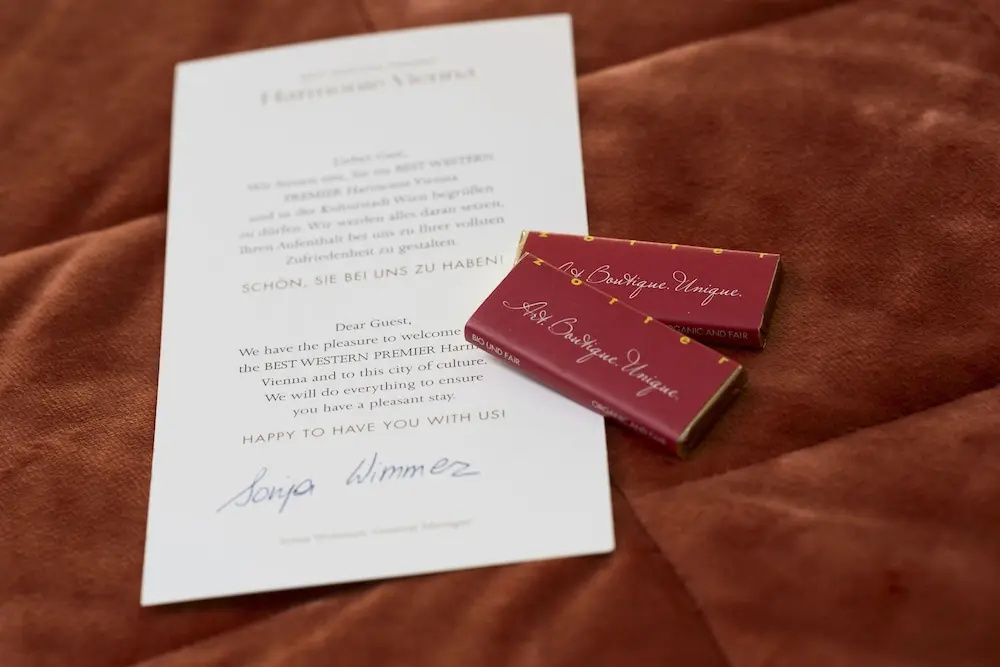 Harmonie Vienna
Lieber Gast,
Wir freuen uns, Sie im BEST WESTERN
PREMIER Harmonie Vienna
und in der Kulturstadt Wien begrüßen
zu dürfen. Wir werden alles daran setzen,
Ihren Aufenthalt bei uns zu Ihrer vollsten
Zufriedenheit zu gestalten.
SCHÖN, SIE BEI UNS ZU HABEN!
Dear Guest,
We have the pleasure to welcome
the BEST WESTERN PREMIER Harm
Vienna and to this city of culture.
We will do everything to ensure
you have a pleasant stay.
HAPPY TO HAVE YOU WITH US!
Sonja Wimmer
Sonja Wimmer, General Manager
zotter
Art. Boutique. Unique.
ORGANIC AND FAIR
zotter
Art. Boutique. Unique.
BIO UND FAIR
ORGANIC AND FAIR